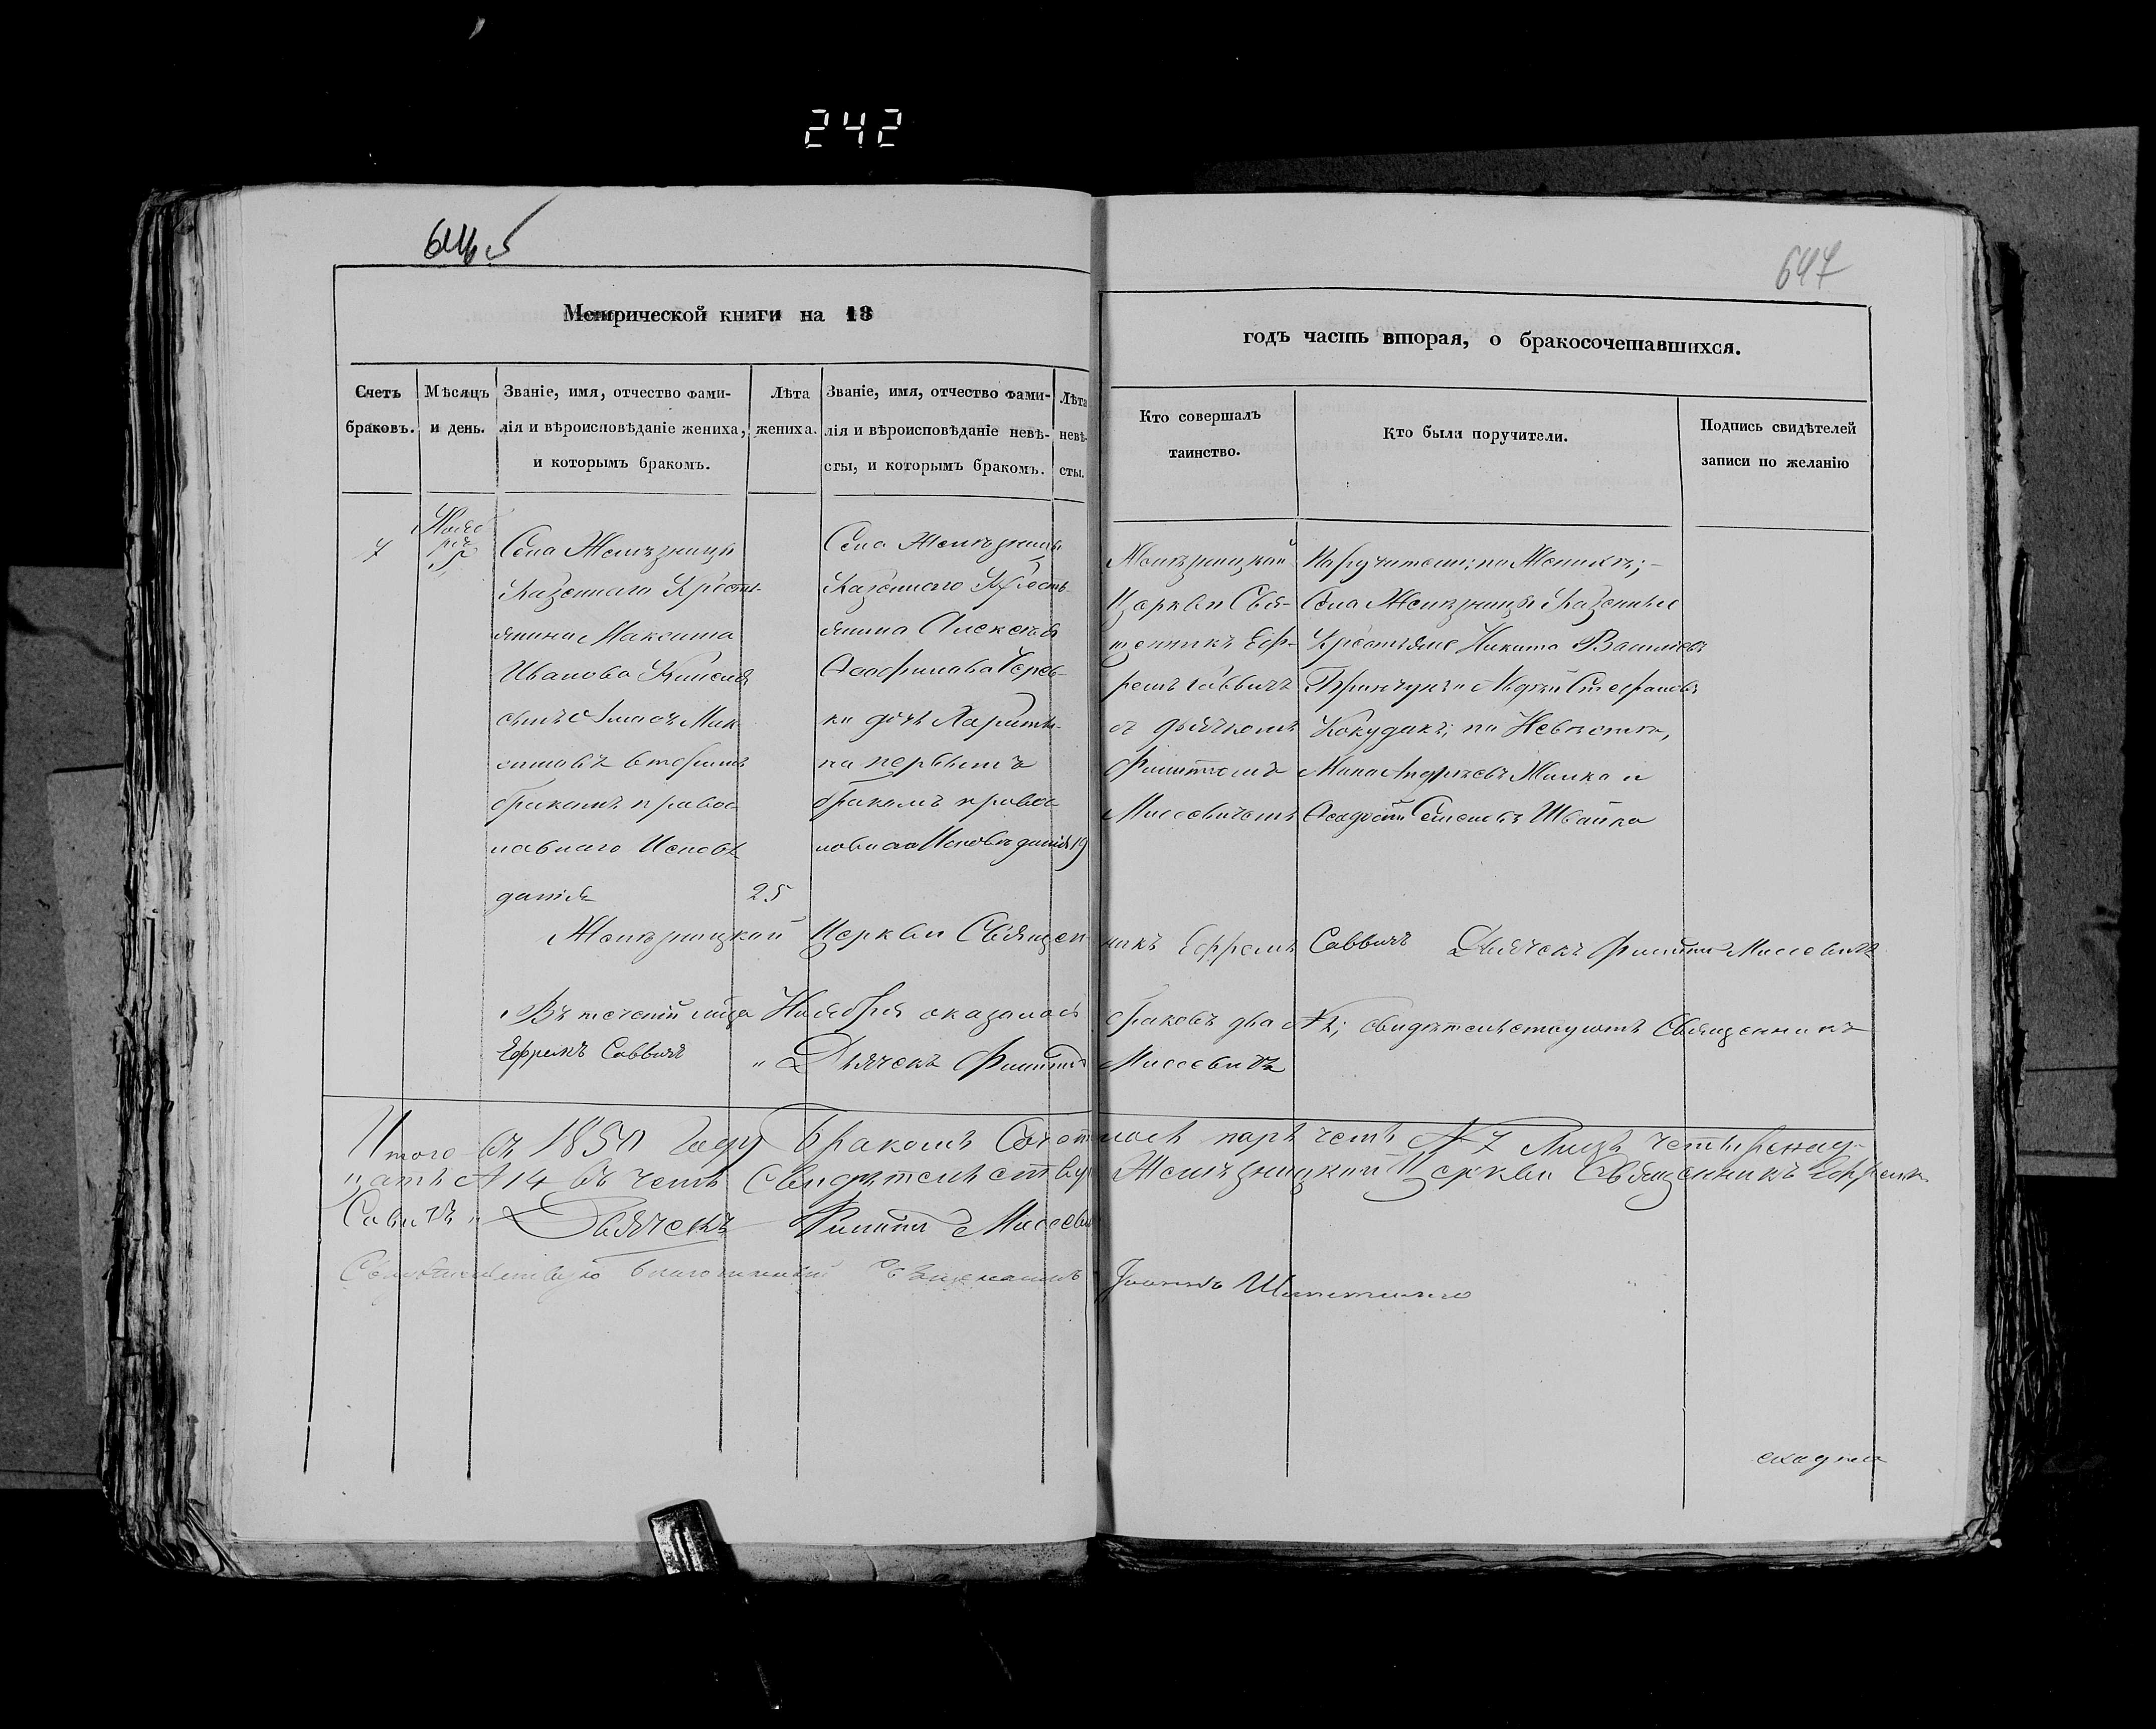 242
647
Метрической книги на 18
годъ часть вторая, о бракосочетавшихся.
Счетъ
браковъ.
Мѣсяцъ
и день.
Званіе, имя, отчество фами-
лія и вѣроисповѣданіе жениха,
и которымъ бракомъ.
Лѣта
жениха.
Званіе, имя, отчество фами-
лія и вѣроисповѣданіе невѣ-
сты, и которымъ бракомъ.
Лѣта
невѣ-
сты.
Кто совершалъ
таинство.
Кто были поручители.
Подпись свидѣтелей
записи по желанію
7
Нояб
ря
5
Села Желѣзницы
Казеннаго Кресть-
янина Максима
Иванова
сынъ Мак
симовъ вторымъ
бракомъ правос
лавнаго Исповѣ
данія
25
Села Желѣзницы
Казеннаго Кресть-
янина Алексѣя
дочь Харити-
на первымъ
бракомъ правос
лавнаго Исповѣданія
19
Желѣзницкой
Церкви Свя-
щенникъ Еф-
ремъ Саввичъ
съ дьячкомъ
Филиппомъ
Миссевичемъ
Поручители; по Женихѣ; –
Села Желѣзницы Казенные
Крестьяне Никита Васильевъ
Стефановъ
по Невѣстѣ,
Андреевъ и
Семеновъ Швайка
Желѣзницкой Церкви Священ
никъ Ефремъ Саввичъ Дьячекъ Филиппъ Миссевичъ
Въ теченіи Ноября оказалось
браковъ два № 2; свидѣтельствуютъ Священникъ
Ефремъ Саввичъ „ Дьячекъ Филиппъ
Миссевичъ
Итого въ 1850 Году Бракомъ Сочет
лось паръ семь № 7 Лицъ четыренад-
цать № 14 въ чемъ Свидѣтельству
Желѣзницкой Церкви Священникъ Ефремъ
Савичъ „ Дьячекъ Филиппъ Миссеви
Свидѣтельствую благочинный Священникъ